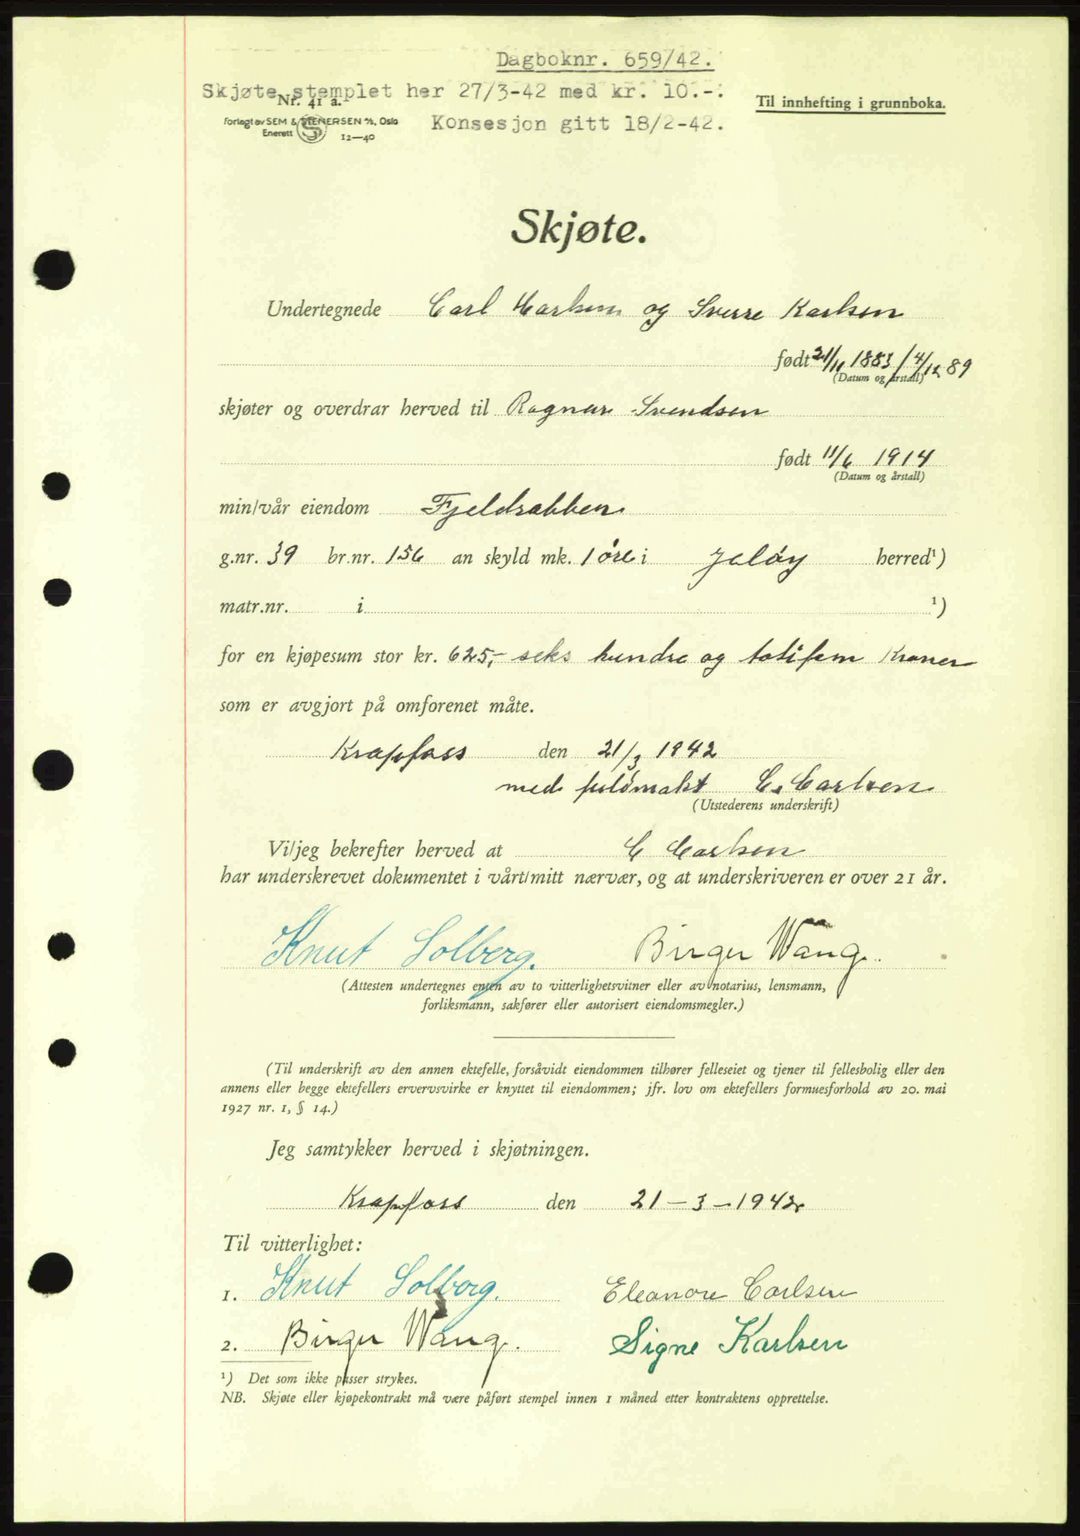 Dagboknr. 659/42.
Skjøte stemplet her 27/3-42 med kr. 10.-.
Nr. 41 a.
Til innhefting i grunnboka.
Forlagt av SEM & STENERSEN A/S, Oslo
Konsesjon gitt 18/2-42.
Enerett S 12—40
Skjøte.
Undertegnede Carl Carlsen og Sverre Karlsen
født 21/11 1883 / 4/12 89
(Datum og årstall)
skjøter og overdrar herved til Ragnar Svendsen
født 11/6 1914
(Datum og årstall)
min/vår eiendom Fjeldrabben
g.nr. 39 br.nr. 156 an skyld mk. 1 øre i Jeløy herred¹)
matr.nr. i ¹)
for en kjøpesum stor kr. 625,- seks hundre og totifem Kroner
som er avgjort på omforenet måte.
Krapfoss den 21/3 1942
med fuldmakt C. Carlsen
(Utstederens underskrift)
Vi/jeg bekrefter herved at C Carlsen
har underskrevet dokumentet i vårt/mitt nærvær, og at underskriveren er over 21 år.
Knut Solberg. Birger Wang.
(Attesten undertegnes enten av to vitterlighetsvitner eller av notarius, lensmann,
forliksmann, sakfører eller autorisert eiendomsmegler.)
(Til underskrift av den annen ektefelle, forsåvidt eiendommen tilhører felleseiet og tjener til fellesbolig eller den
annens eller begge ektefellers ervervsvirke er knyttet til eiendommen; jfr. lov om ektefellers formuesforhold av 20. mai
1927 nr. 1, § 14.)
Jeg samtykker herved i skjøtningen.
Krapfoss den 21-3-1942
Til vitterlighet:
1. Knut Solberg. Eleanore Carlsen
2. Birger Wang. Signe Karlsen
¹) Det som ikke passer strykes.
NB. Skjøte eller kjøpekontrakt må være påført stempel innen 1 måned etter kontraktens opprettelse.